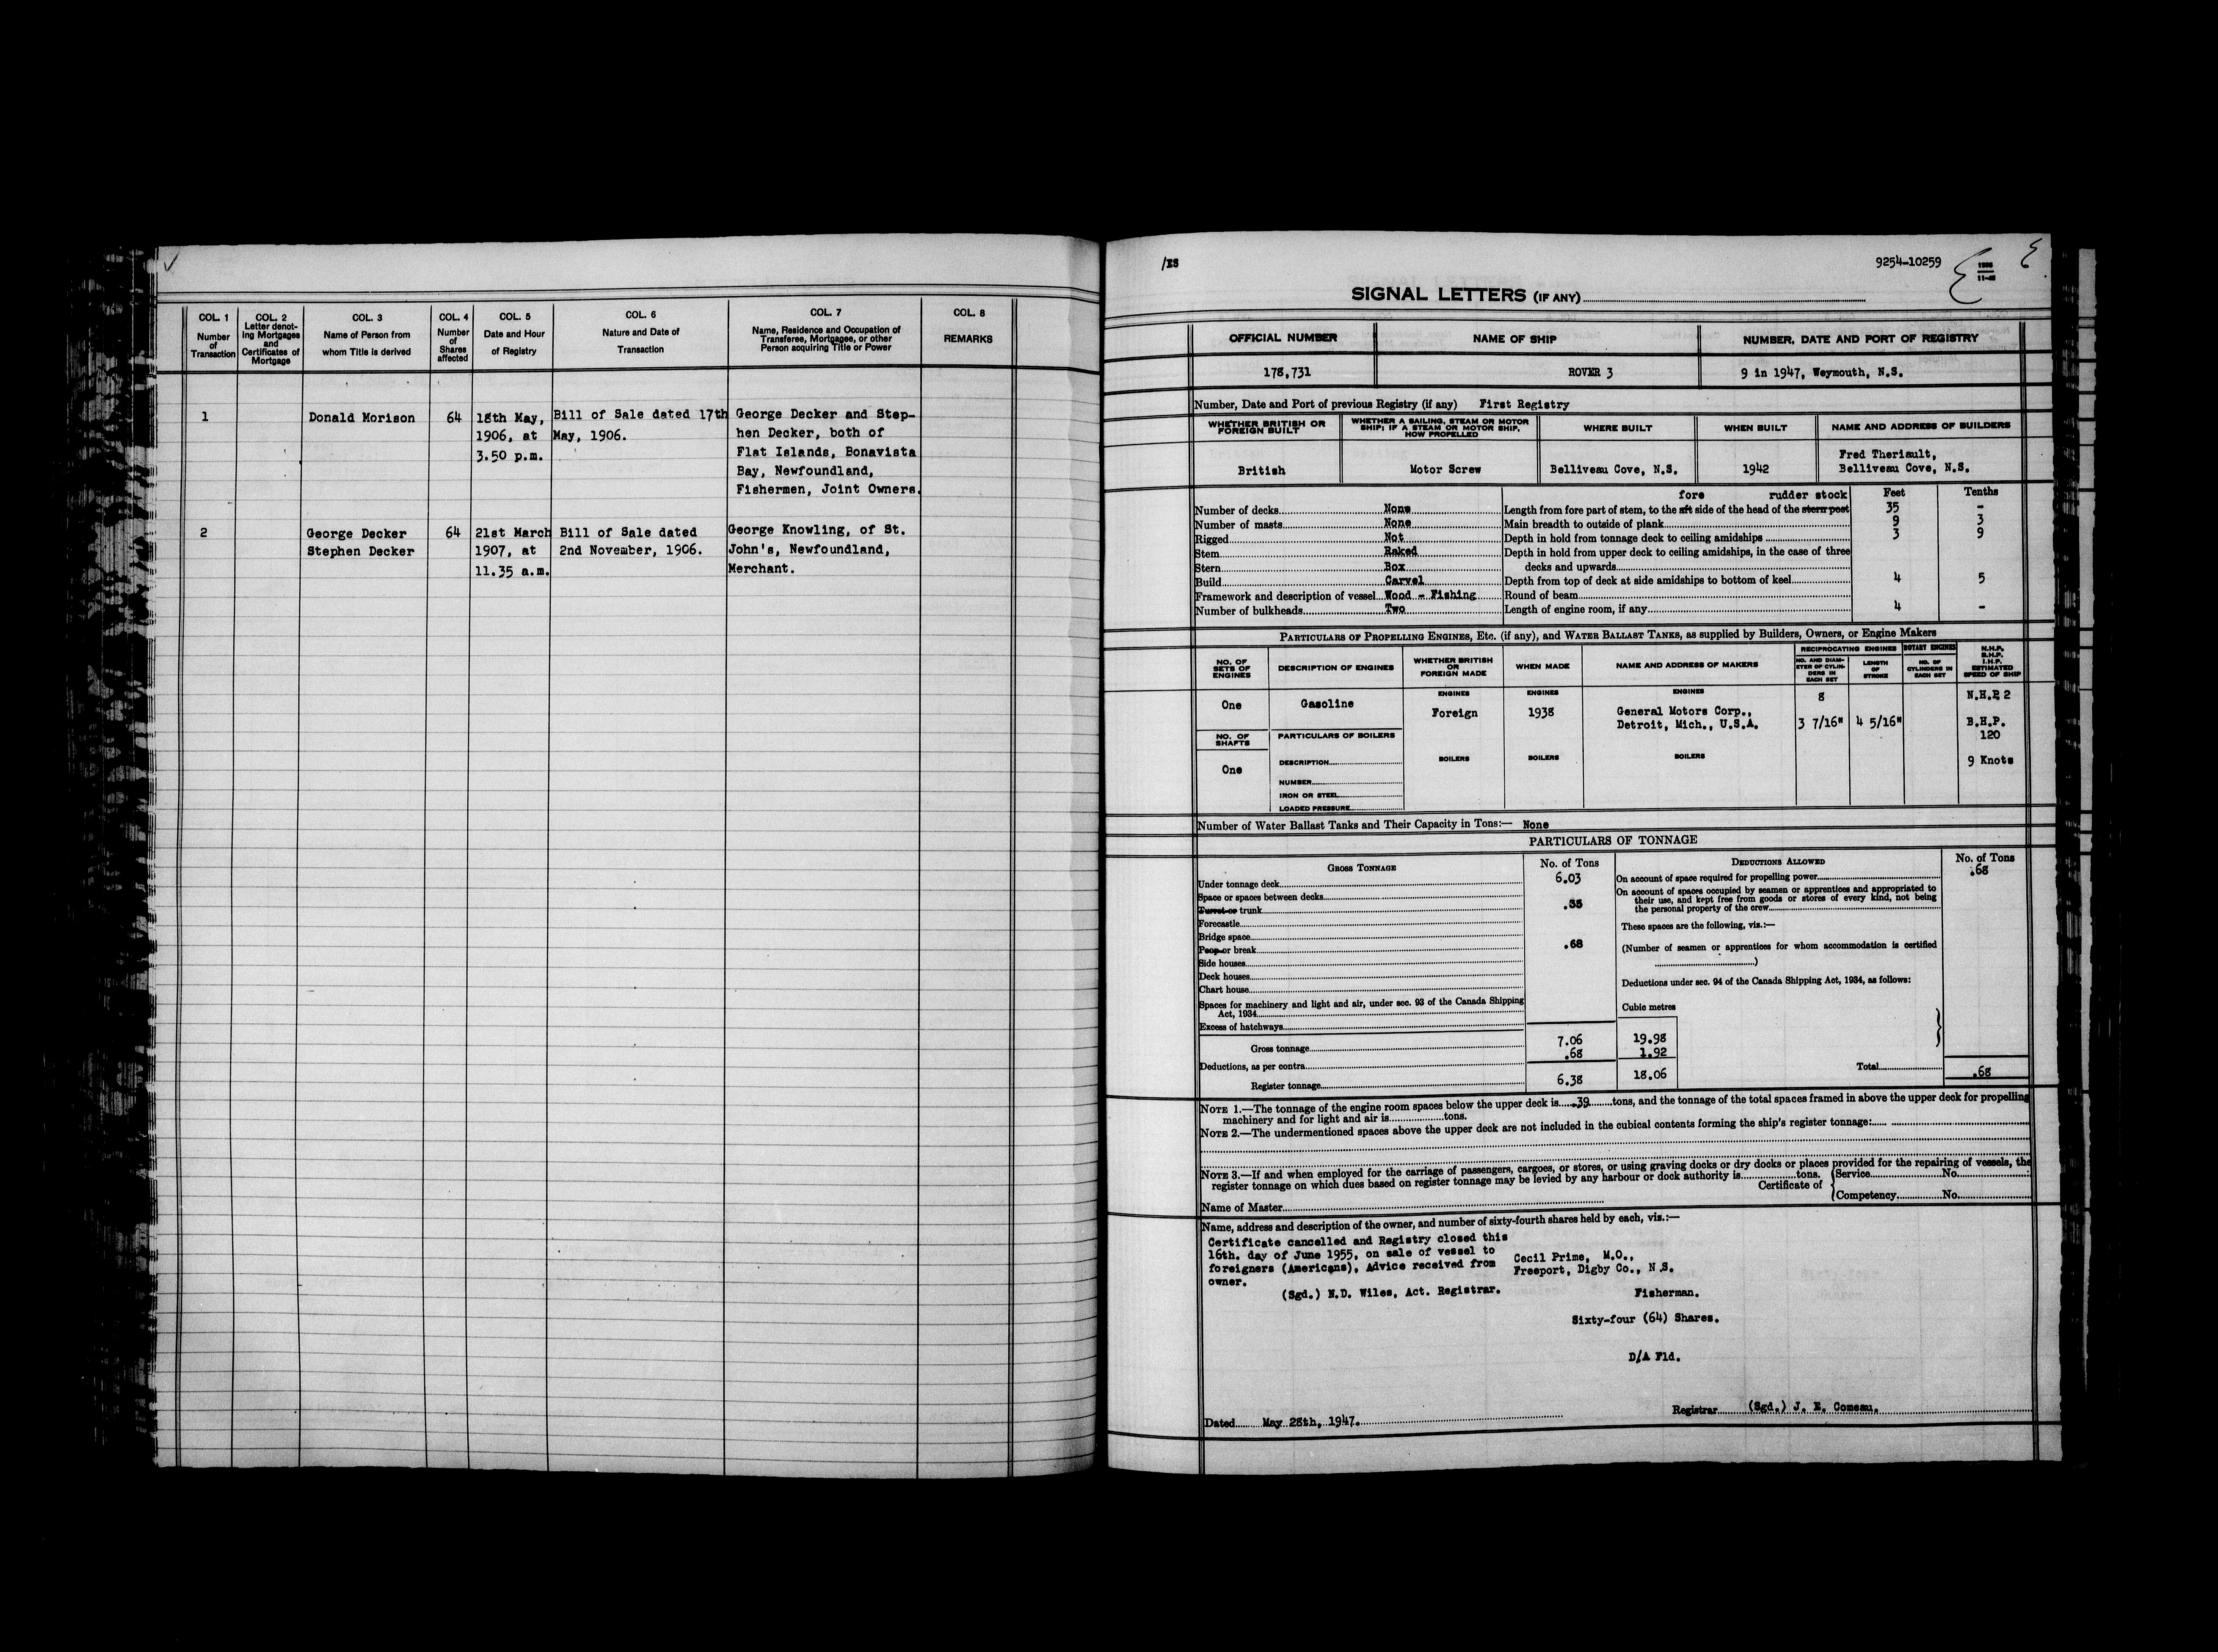 COL. 1
Number
of
Transaction
COL. 2
Letter denot-
ing Mortgages
and
Certificates of
Mortgage
COL. 3
Name of Person from
whom Title is derived
COL. 4
Number
of
Shares
affected
COL. 5
Date and Hour
of Registry
COL. 6
Nature and Date of
Transaction
COL. 7
Name, Residence and Occupation of
Transferee, Mortgagee, or other
Person acquiring Title or Power
COL. 8
REMARKS
1
Donald Morison
64
18th May,
1906, at
3.50 p.m.
Bill of Sale dated 17th
May, 1906.
George Decker and Step-
hen Decker, both of
Flat Islands, Bonavista
Bay, Newfoundland,
Fishermen, Joint Owners.
2
George Decker
Stephen Decker
64
21st March
1907, at
11.35 a.m.
Bill of Sale dated
2nd November, 1906.
George Knowling, of St.
John's, Newfoundland,
Merchant.
/ES
9254-10259
SIGNAL LETTERS (IF ANY)
OFFICIAL NUMBER
NAME OF SHIP
NUMBER, DATE AND PORT OF REGISTRY
178,731
ROVER 3
9 in 1947, Weymouth, N.S.
Number, Date and Port of previous Registry (if any) First Registry
WHETHER BRITISH OR
FOREIGN BUILT
WHETHER A SAILING, STEAM OR MOTOR
SHIP; IF A STEAM OR MOTOR SHIP,
HOW PROPELLED
WHERE BUILT
WHEN BUILT
NAME AND ADDRESS OF BUILDERS
British
Motor Screw
Belliveau Cove, N.S.
1942
Fred Theriault,
Belliveau Cove, N.S.
Number of decks None
Number of masts None
Rigged Not
Stem Raked
Stern Box
Build Carvel
Framework and description of vessel Wood - Fishing
Number of bulkheads Two
fore rudder stock Feet Tenths
Length from fore part of stem, to the aft side of the head of the stern post 35 -
Main breadth to outside of plank 9 3
Depth in hold from tonnage deck to ceiling amidships 3 9
Depth in hold from upper deck to ceiling amidships, in the case of three
decks and upwards
Depth from top of deck at side amidships to bottom of keel 4 5
Round of beam
Length of engine room, if any 4 -
PARTICULARS OF PROPELLING ENGINES, ETC. (if any), and WATER BALLAST TANKS, as supplied by Builders, Owners, or Engine Makers
NO. OF
SETS OF
ENGINES
DESCRIPTION OF ENGINES
WHETHER BRITISH
OR
FOREIGN MADE
WHEN MADE
NAME AND ADDRESS OF MAKERS
RECIPROCATING ENGINES
NO. AND DIAM-
ETER OF CYLIN-
DERS IN
EACH SET
LENGTH
OF
STROKE
ROTARY ENGINES
NO. OF
CYLINDERS IN
EACH SET
N.H.P.
B.H.P.
I.H.P.
ESTIMATED
SPEED OF SHIP
One
Gasoline
ENGINES
Foreign
ENGINES
1938
ENGINES
General Motors Corp.,
Detroit, Mich., U.S.A.
8
3 7/16"
4 5/16"
N.H.P. 2
B.H.P.
120
9 Knots
NO. OF
SHAFTS
One
PARTICULARS OF BOILERS
DESCRIPTION
NUMBER
IRON OR STEEL
LOADED PRESSURE
BOILERS
BOILERS
BOILERS
Number of Water Ballast Tanks and Their Capacity in Tons:— None
PARTICULARS OF TONNAGE
GROSS TONNAGE
No. of Tons
Under tonnage deck 6.03
Space or spaces between decks
Turret or trunk .35
Forecastle
Bridge space
Poop or break .68
Side houses
Deck houses
Chart house
Spaces for machinery and light and air, under sec. 93 of the Canada Shipping
Act, 1934
Excess of hatchways
Gross tonnage 7.06 19.98
Deductions, as per contra .68 1.92
Register tonnage 6.38 18.06
DEDUCTIONS ALLOWED
No. of Tons
On account of space required for propelling power .68
On account of spaces occupied by seamen or apprentices and appropriated to
their use, and kept free from goods or stores of every kind, not being
the personal property of the crew
These spaces are the following, viz.:—
(Number of seamen or apprentices for whom accommodation is certified
)
Deductions under sec. 94 of the Canada Shipping Act, 1934, as follows:
Cubic metres
Total .68
NOTE 1.—The tonnage of the engine room spaces below the upper deck is .39 tons, and the tonnage of the total spaces framed in above the upper deck for propelling
machinery and for light and air is tons.
NOTE 2.—The undermentioned spaces above the upper deck are not included in the cubical contents forming the ship's register tonnage:
NOTE 3.—If and when employed for the carriage of passengers, cargoes, or stores, or using graving docks or dry docks or places provided for the repairing of vessels, the
register tonnage on which dues based on register tonnage may be levied by any harbour or dock authority is tons.
Certificate of
Service No.
Competency No.
Name of Master
Name, address and description of the owner, and number of sixty-fourth shares held by each, viz.:—
Certificate cancelled and Registry closed this
16th. day of June 1955, on sale of vessel to
foreigners (Americans), Advice received from
owner.
(Sgd.) N.D. Wiles, Act. Registrar.
Cecil Prime, M.O.,
Freeport, Digby Co., N.S.
Fisherman.
Sixty-four (64) Shares.
D/A Fld.
Dated May 28th, 1947.
Registrar (Sgd.) J. E. Comeau.